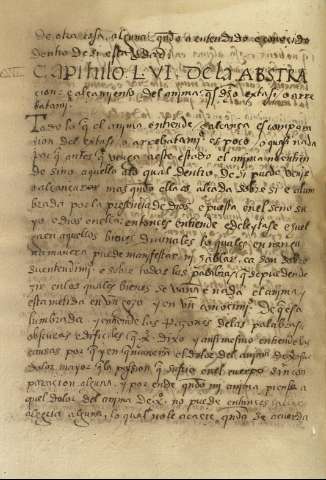 de otra cosa, alguna qndo a entendido e conocido
dentro de si esta verdad
Capitulo LVI. De la ABSTRA
cion: e alçamiento del anima qs dho extasi o arre
batami.
Todo lo q el anima entiende e alcança en compara
cion del extasi o arrebatami. es poco, o quasi nada
por q antes q venga a este estado el anima no entien
de sino aquello a lo qual dentro de si puede venir
e alcançar mas qndo ella es alçada sobre si e alum
brada por la presencia de dios, e puesta en el seno su
yo e dios en ella: entonces entiende e deleytase e
en aquellos bienes divinales los quales en nengu
na manera puede manifestar ni hablar, ca son sobre
su entendimi. e sobre todas las palabras q se pueden de
zir en los quales bienes se vaña e nada el anima y
esta metida en un gozo y en un conocimi. de
lumbrada y entiende las razones de las palabras
obscuras e dificiles q x. dixo y ansi mesmo entiende
causas por q y en q manera el dolor del anima de x. fue
dolor mayor q la passion q sufrio en el cuerpo sin com
paracion alguna. y por ende qndo mi anima piensa
aquel dolor del anima de x. no puede entonces
alegria alguna, lo qual no le acaece qndo se acuerda